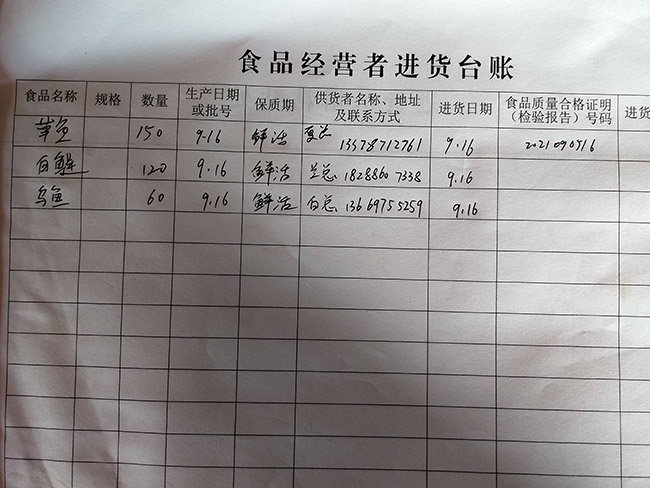 食品经营者进货台账
食品名称 规格 数量 生产日期或批号 保质期 供货者名称、地址及联系方式 进货日期 食品质量合格证明（检验报告）号码 进货
草鱼 150 9.16 鲜活 13578712761 9.16
白鲢 120 9.16 鲜活 兰总 18288607338 9.16
乌鱼 60 9.16 鲜活 白总 13669755259 9.16